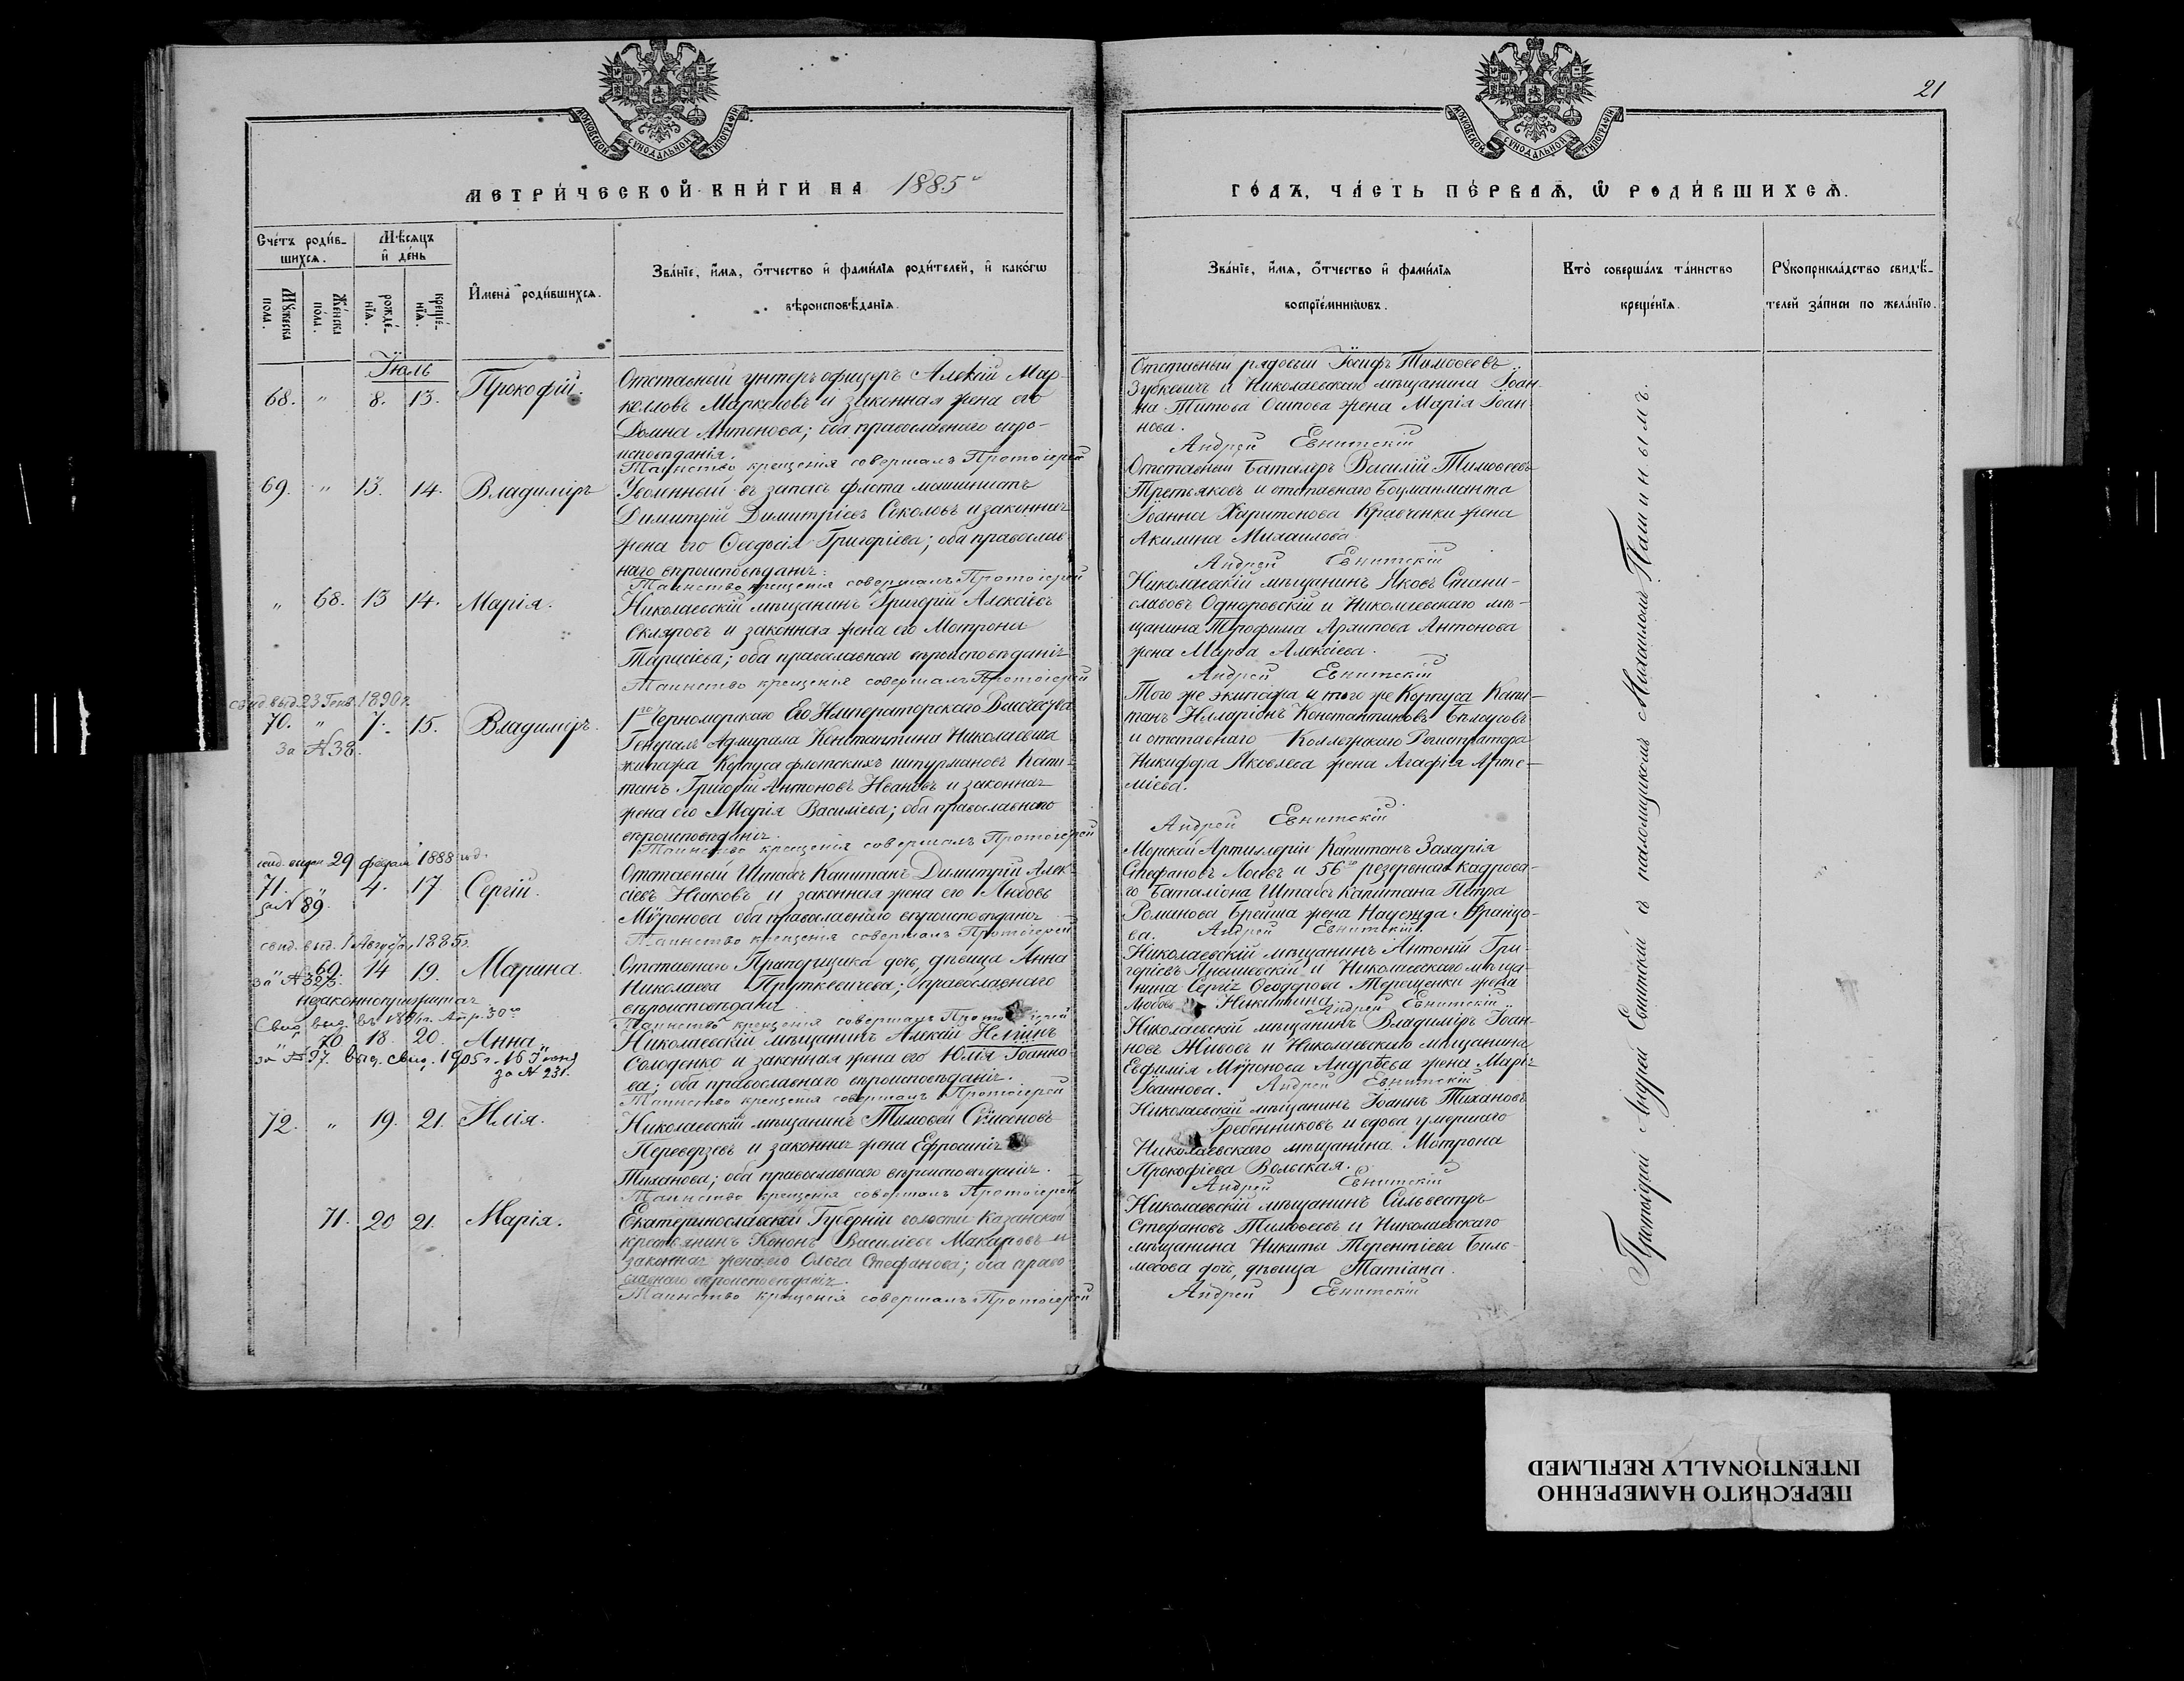 МОСКОВСКОЙ СѴНОДАЛЬНОЙ ТИПОГРАФІИ
МЕТРИ́ЧЕСКОЙ КНИ́ГИ НА 1885
Сче́тъ роди́в-
шихсѧ.
Мѣ́сѧцъ
и҆ де́нь
Мꙋ́жеска
по́ла.
Же́нска
по́ла.
рожде́-
нїѧ.
креще́-
нїѧ.
И҆мена̀ роди́вшихсѧ.
Зва́нїе, и҆́мѧ, ѻ҆́тчество и҆ фами́лїѧ роди́телей, и҆ како́гѡ
вѣроисповѣ́данїѧ.
Іюль
68. " 8. 13. Прокофій.
Отставный унтеръ офицеръ Алексій Мар-
келловъ Маркеловъ и законная жена его
Домна Антонова; оба православнаго веро-
исповѣданія.
Таинство крещенія совершалъ Протоіерей
69. " 13. 14. Владиміръ
Уволенный въ запасъ флота машинистъ
Димитрій Димитріевъ Соколовъ и законная
жена его Ѳеодосія Григоріева; оба православ-
наго вѣроисповѣданія.
Таинство крещенія совершалъ Протоіерей
" 68. 13 14. Марія.
Николаевскій мѣщанинъ Григорій Алексіевъ
Скляровъ и законная жена его Мотрона
Тарасіева; оба православнаго вѣроисповѣданія
Таинство крещенія совершалъ Протоіерей
свид. выд. 23 Генв. 1890 г.
70. " 7. 15. Владиміръ.
за № 38.
1го Черноморскаго Его Императорскаго Высочества
Генералъ Адмирала Константина Николаевича
экипажа Корпуса флотскихъ штурмановъ Капи-
танъ Григорій Антоновъ Ивановъ и законная
жена его Марія Василіева; оба православнаго
вѣроисповѣданія.
Таинство крещенія совершалъ Протоіерей
свид. выдан 29 февраля 1888 год.
71. " 4. 17. Сергій.
за № 89.
Отставный Штабсъ Капитанъ Димитрій Алек-
сіевъ Исаковъ и законная жена его Любовь
Мѵронова оба православнаго вѣроисповѣданія
Таинство крещенія совершалъ Протоіерей
свид. выд. 1 Августа, 1885 г.
" 69. 14 19. Марина.
за № 325.
незаконноприжитая
Отставнаго Прапорщика дочь, дѣвица Анна
Николаева Пруткевичева; православнаго
вѣроисповѣданія
Таинство крещенія совершалъ Протоіерей
Апр. 30го
" 70 18. 20. Анна.
за № 97. выд. свид. 1905 г. 16
за № 231.
Николаевскій мѣщанинъ Алексій
Солоденко и законная жена его Юлія Іоанно-
ва; оба православнаго вѣроисповѣданія.
Таинство крещенія совершалъ Протоіерей
72. " 19. 21. Илія.
Николаевскій мѣщанинъ Тимоѳей Сѵмеоновъ
Переверзевъ и законная жена Ефросинія
Тиханова; оба православнаго вѣроисповѣданія.
Таинство крещенія совершалъ Протоіерей
71. 20 21. Марія.
Екатеринославской Губерніи волости Казанской
крестьянинъ Кононъ Василіевъ Макаровъ и
законная жена его Ольга Стефанова; оба право-
славнаго вѣроисповѣданія.
Таинство крещенія совершалъ Протоіерей
21
МОСКОВСКОЙ СѴНОДАЛЬНОЙ ТИПОГРАФІИ
ГО́ДЪ, ЧА́СТЬ ПЕ́РВАѦ, Ѡ҆ РОДИ́ВШИХСѦ.
Зва́нїе, и҆́мѧ, ѻ҆́тчество и҆ фами́лїѧ
воспрїе́мникѡвъ.
Кто̀ соверша́лъ та́инство
креще́нїѧ.
Рꙋкоприкла́дство свидѣ́-
телей за́писи по жела́нїю.
Отставный рядовый Іосифъ Тимоѳеевъ
Зубкевичъ и Николаевскаго мѣщанина Іоан-
на Титова Осипова жена Марія Іоан-
нова.
Андрей Евнитскій
Отставный баталеръ Василій Тимоѳеевъ
Третьяковъ и отставнаго боцманмата
Іоанна Харитонова Кравченки жена
Акилина Михаилова
Андрей Евнитскій
Николаевскій мѣщанинъ Яковъ Стани-
славовъ Одноровскій и Николаевскаго мѣ-
щанина Трофима Архипова Антонова
жена Марѳа Алексіева.
Андрей Евнитскій
Того же экипажа и того же Корпуса Капи-
танъ Илларіонъ Константиновъ Бѣлоусовъ
и отставнаго Коллежскаго Регистратора
Никифора Яковлева жена Агафія Арте-
міева.
Андрей Евнитскій
Морской Артиллеріи Капитанъ Захарія
Стефановъ и 56го резервнаго кадрова-
го баталіона Штабсъ Капитана Петра
Романова жена Надежда Францо-
ва. Андрей Евнитскій.
Николаевскій мѣщанинъ Антоній Гри-
горіевъ Янышевскій и Николаевскаго мѣща-
нина Сергія Ѳеодорова Терещенки жена
Любовь Никитина
Андрей Евнитскій
Николаевскій мѣщанинъ Владиміръ Іоан-
новъ Живовъ и Николаевскаго мѣщанина
Евфимія Мѵронова Андрѣева жена Марія
Іоаннова. Андрей Евнитскій
Николаевскій мѣщанинъ Іоаннъ Тихановъ
Гребенниковъ и вдова умершаго
Николаевскаго мѣщанина Мотрона
Прокофіева Вольская.
Андрей Евнитскій
Николаевскій мѣщанинъ Сильвестръ
Стефановъ Тимоѳеевъ и Николаевскаго
мѣщанина Никиты Терентіева Биль-
месова дочь, дѣвица Татіана.
Андрей Евнитскій
Протоіерей Андрей Евнитскій съ псаломщикомъ Михаиломъ Пашинымъ.
ПЕРЕСНЯТО НАМЕРЕННО
INTENTIONALLY REFILMED